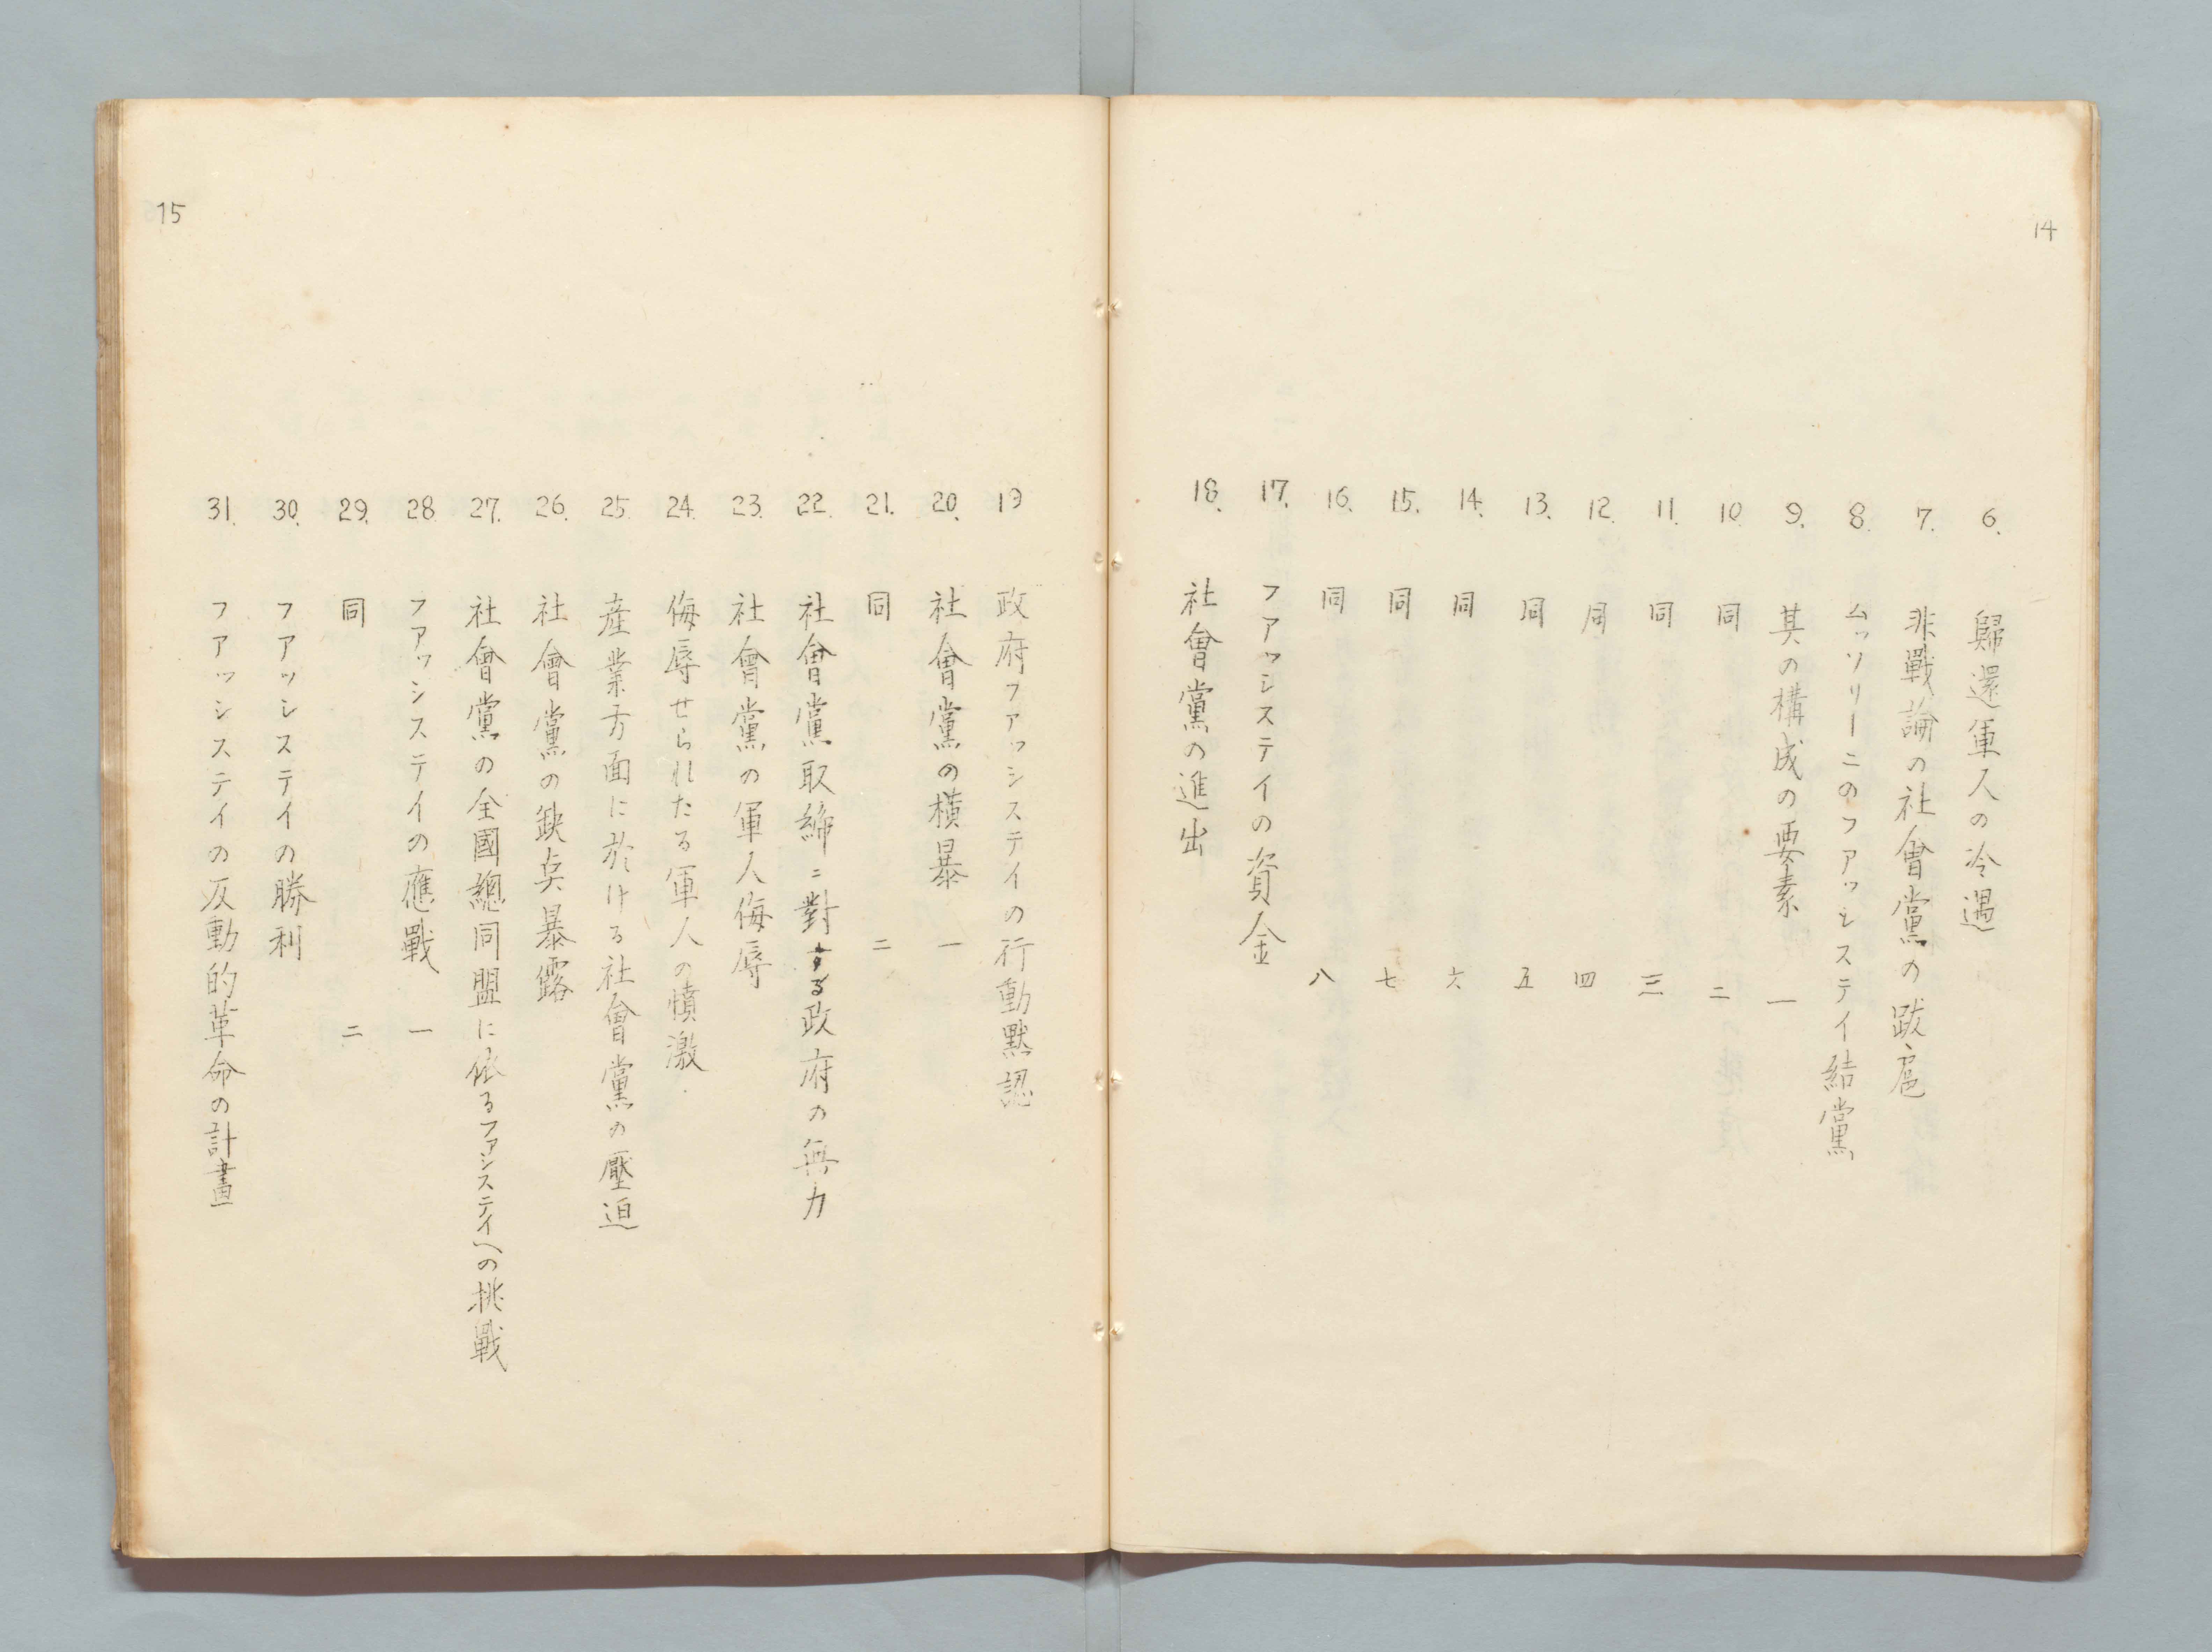 14
6. 歸還軍人の冷遇
7. 非戰論の社會黨の跋扈
8. ムッソリーニのファッシステイ結黨
9. 其の構成の要素 一
10 同 二
11. 同 三
12. 同 四
13. 同 五
14. 同 六
15. 同 七
16. 同 八
17. フアッシステイの資金
18. 社會黨の進出
19 政府フアッシステイの行動默認
20. 社會黨の橫暴 一
21. 同 二
22. 社會黨取締ニ對する政府の無力
23. 社會黨の軍人侮辱
24. 侮辱せられたる軍人の憤激.
25. 産業方面に於ける社會黨の壓迫
26. 社會黨の缺点暴露
27. 社會黨の全國總同盟に依るファシステイへの挑戰
28 フアッシステイの應戰 一
29. 同 二
30. フアッシステイの勝利
31. フアッシステイの反動的革命の計畫
15